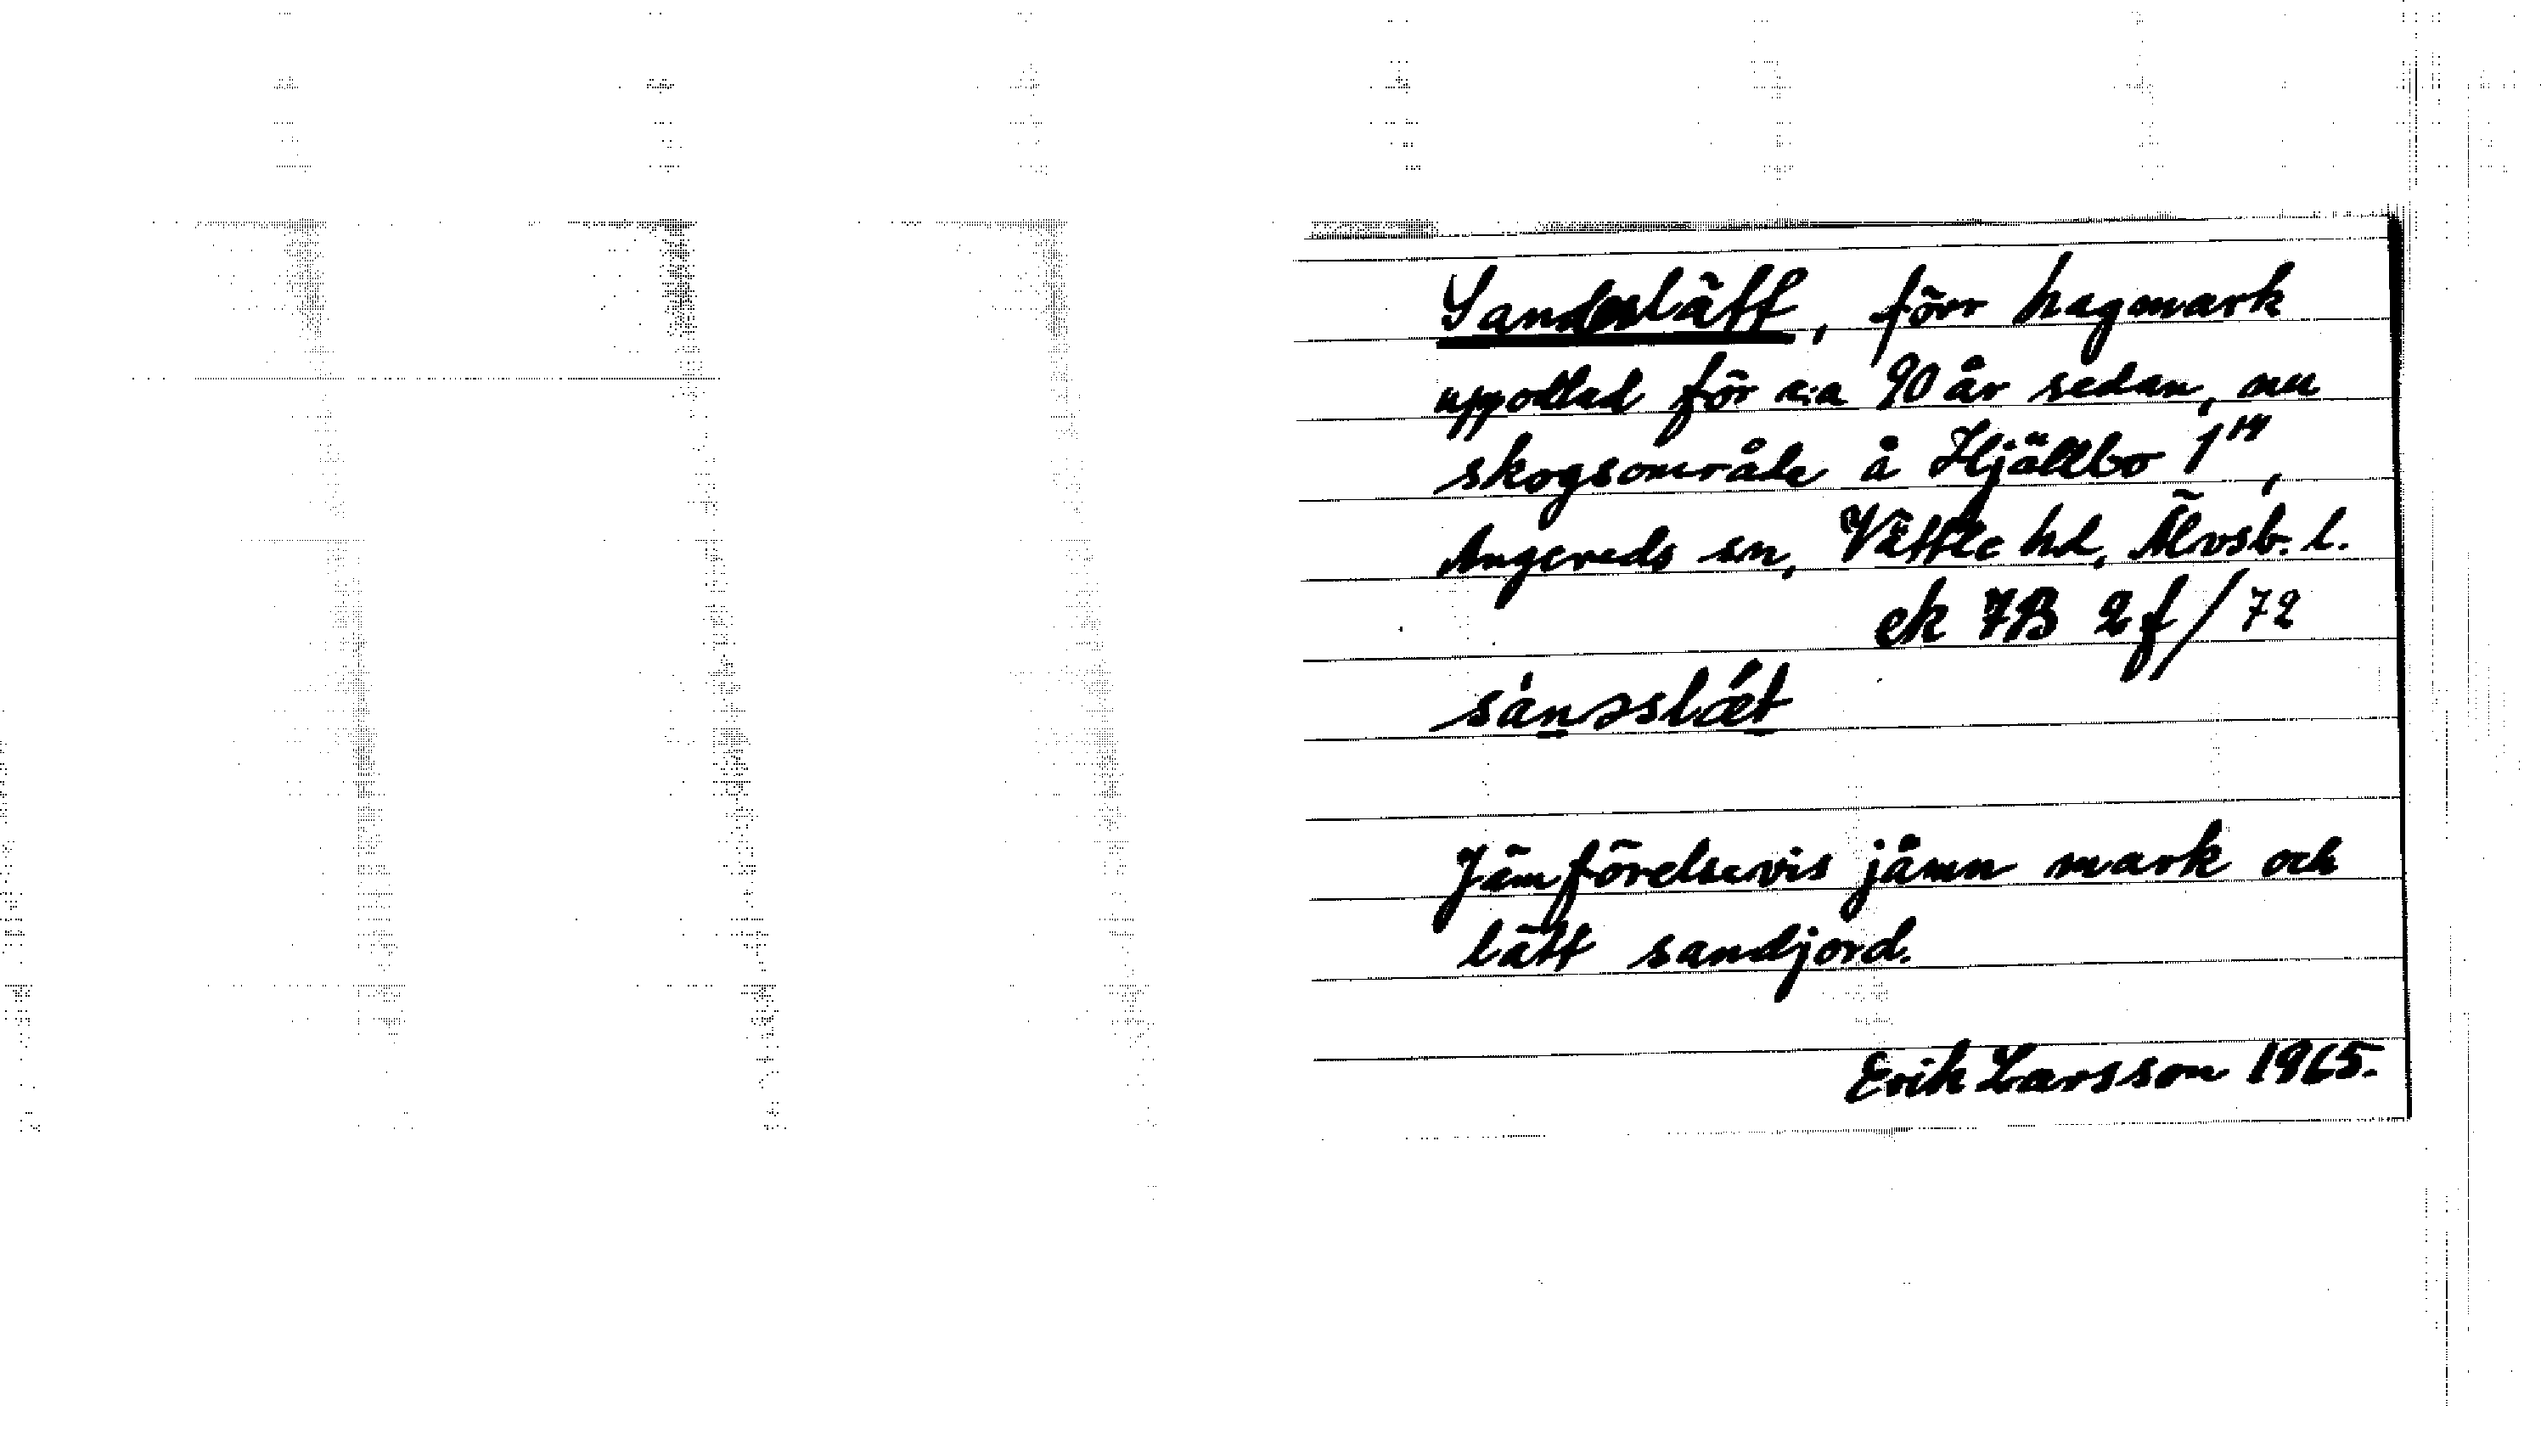 Sandeslätt, förr hagmark
uppodlad för c:a 90 år sedan, nu
skogsområde å Hjällbo 1¹⁴,
Angereds sn, Vättle hd, Älvsb. l.
ek 7B 2f/72
Jämförelsevis jämn mark och
lätt sandjord.
Erik Larsson 1965.